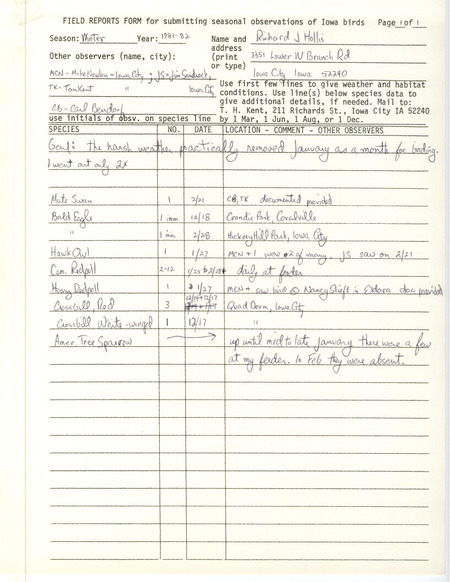 FIELD REPORTS FORM for submitting seasonal observations of Iowa birds Page 1 of 1
Season: Winter Year: 1981-82 Name and Richard J Hollis
Other observers (name, city): address
(print 3351 Lower W Branch Rd
or type) Iowa City Iowa 52240
MCN - Mike Newlon - Iowa City; JS = Jim Sandrock,
TK - Tom Kent " Iowa City
CB - Carl Bendorf
Use first few lines to give weather and habitat
conditions. Use line(s) below species data to
give additional details, if needed. Mail to:
T. H. Kent, 211 Richards St., Iowa City IA 52240
use initials of obsv. on species line by 1 Mar, 1 Jun, 1 Aug, or 1 Dec.
SPECIES NO. DATE LOCATION - COMMENT - OTHER OBSERVERS
Genl: the harsh weather practically removed January as a month for birding.
I went out only 2X
Mute Swan 1 2/21 CB, TK documented provided
Bald Eagle 1 imm 12/18 Park, Coralville
" 1 imm 2/28 Hickory Hill Park, Iowa City
Hawk Owl 1 1/27 MCN + I were 2 of many. JS saw on 2/21
Com. Redpoll 2-12 1/25 to 2/28+ daily at feeder
Hoary Redpoll 1 1/27 MCN + saw bird @ Nancy in Eldora doc provided
Crossbill, Red 3 12/17 Quad Dorm, Iowa City
Crossbill White-winged 1 12/17 "
Amer. Tree Sparrow → up until mid to late January there were a few
at my feeder. In Feb they were absent.